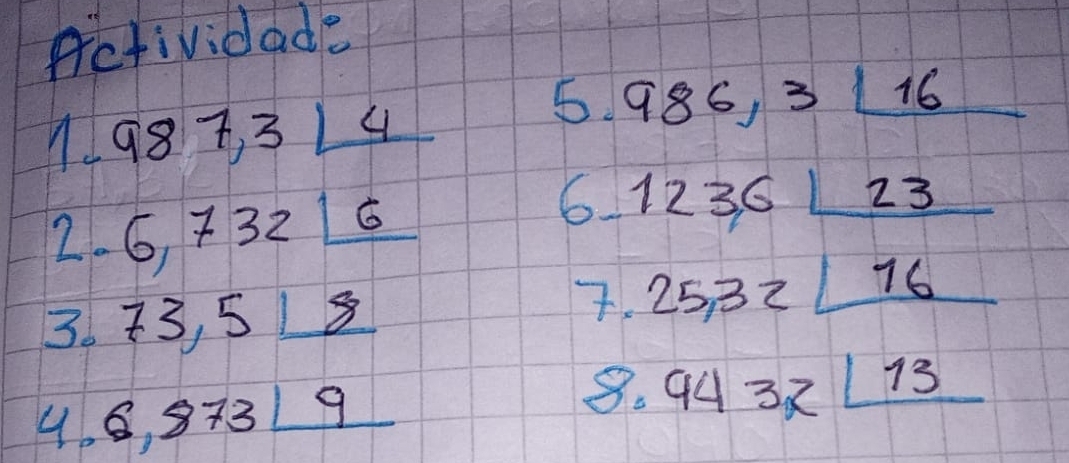 Actividad:
1. 987,3 4
2. 6,732 6
3. 73,5 8
4. 6,873 9
5. 986,3 16
6. 123,6 23
7. 25,32 16
8. 943,2 13